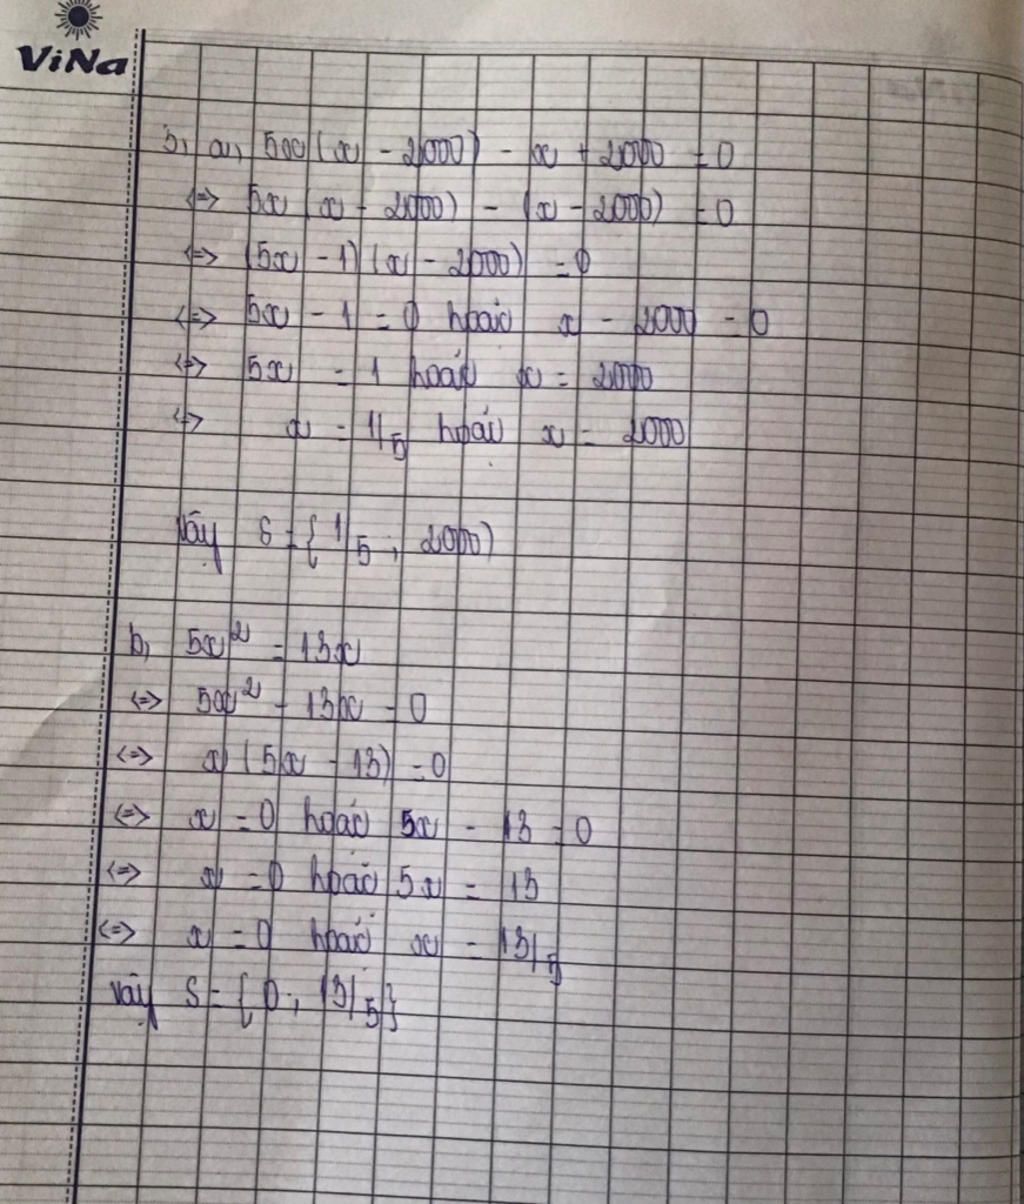 ViNa
3, a, 5x(x - 2000) - x + 2000 = 0
<=> 5x(x - 2000) - (x - 2000) = 0
<=> (5x - 1)(x - 2000) = 0
<=> 5x - 1 = 0 hoặc x - 2000 = 0
<=> 5x = 1 hoặc x = 2000
<=> x = 1/5 hoặc x = 2000
Vậy S = {1/5 ; 2000)
b, 5x² = 13x
<=> 5x² - 13x = 0
<=> x(5x - 13) = 0
<=> x = 0 hoặc 5x - 13 = 0
<=> x = 0 hoặc 5x = 13
<=> x = 0 hoặc x = 13/5
Vậy S = {0 ; 13/5}